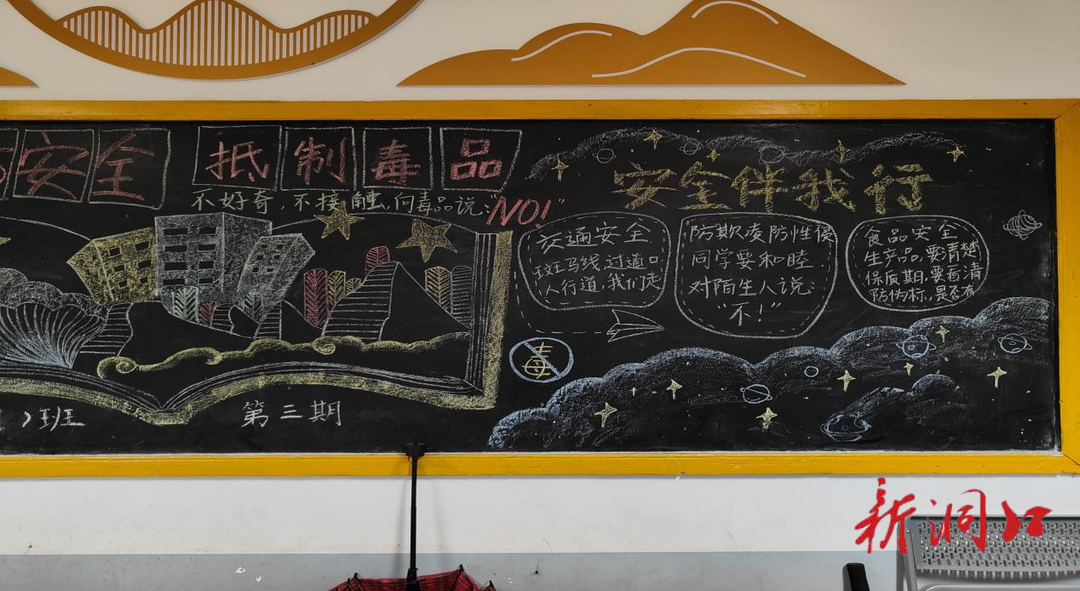 安全
抵制毒品
不好奇,不接触,向毒品说:"NO!"
安全伴我行
交通安全
斑马线过道口
人行道,我们走
防欺凌防性侵
同学要和睦
对陌生人说:
"不!"
食品安全
生产品,要清楚
保质期,要看清
防伪标,是否有
毒
班
第三期
新洞口